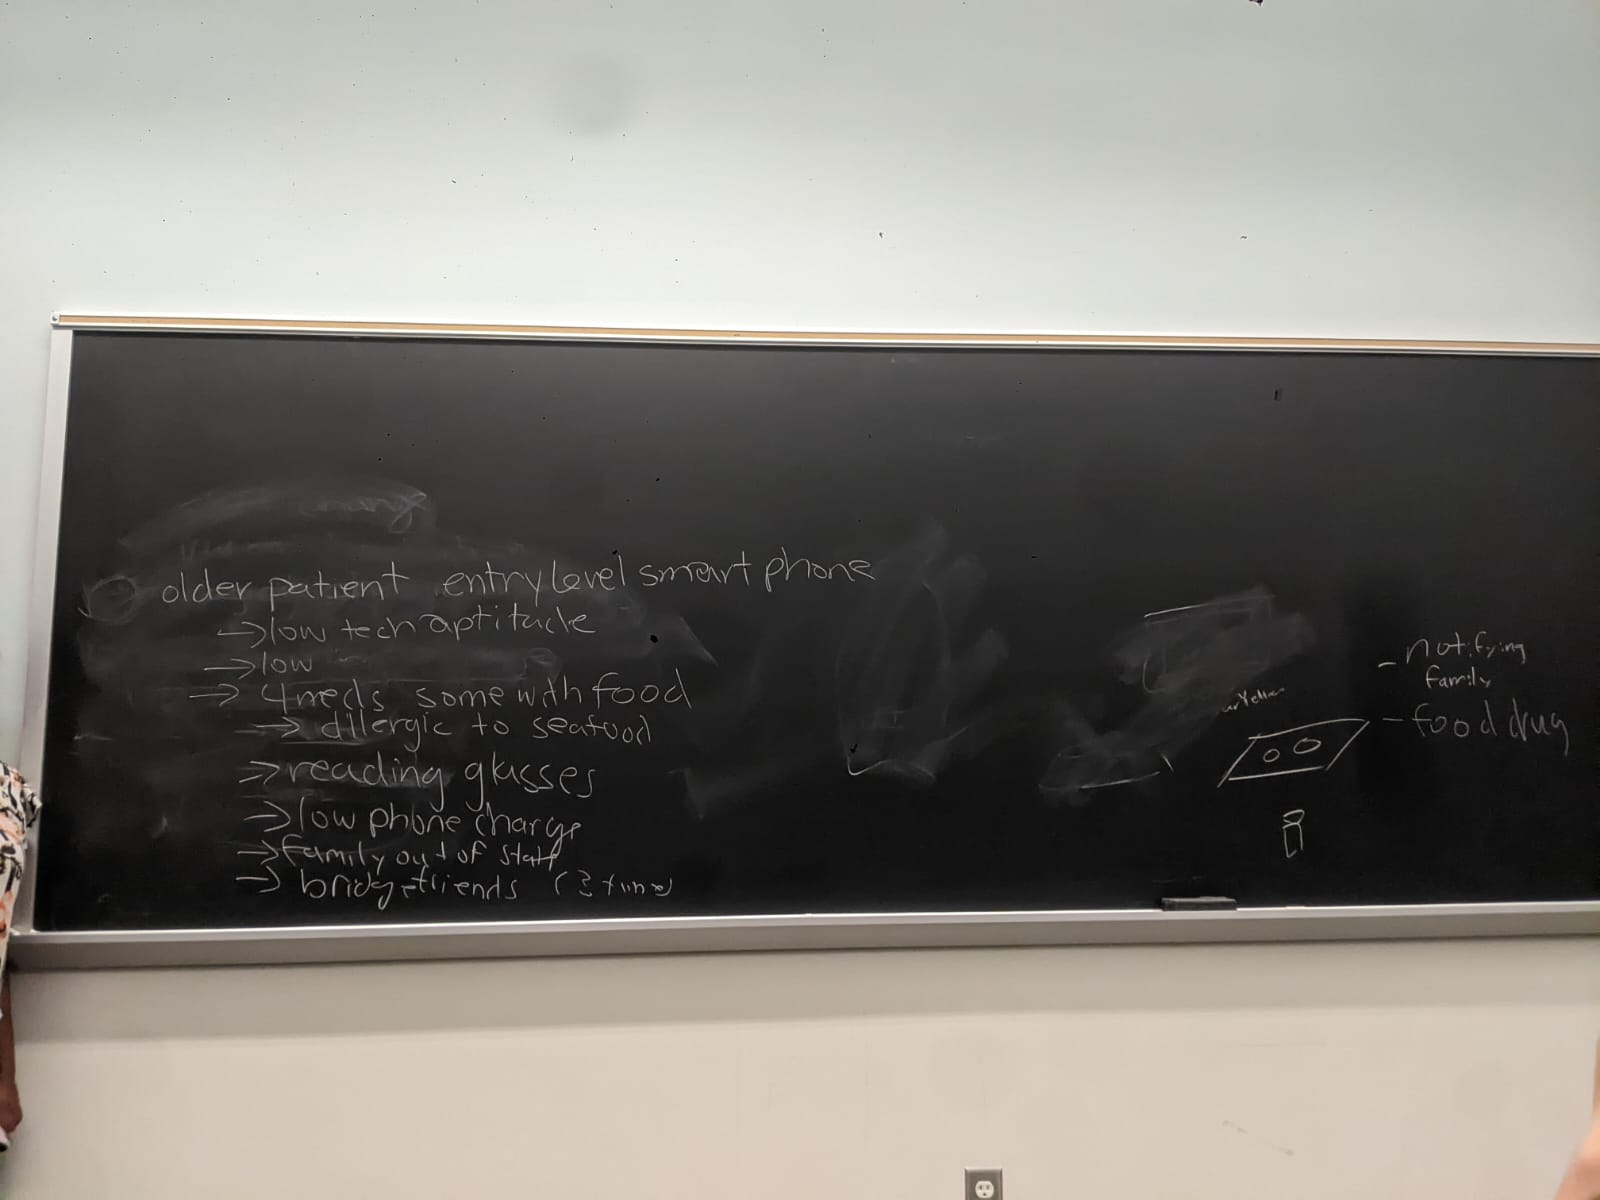 older patient entry level smart phone
→ low tech aptitude
→ low
→ 4 meds some with food
→ allergic to seafood
→ reading glasses
→ low phone charge
→ family out of state
→ bridge friends (3
- notifying
family
- food drug